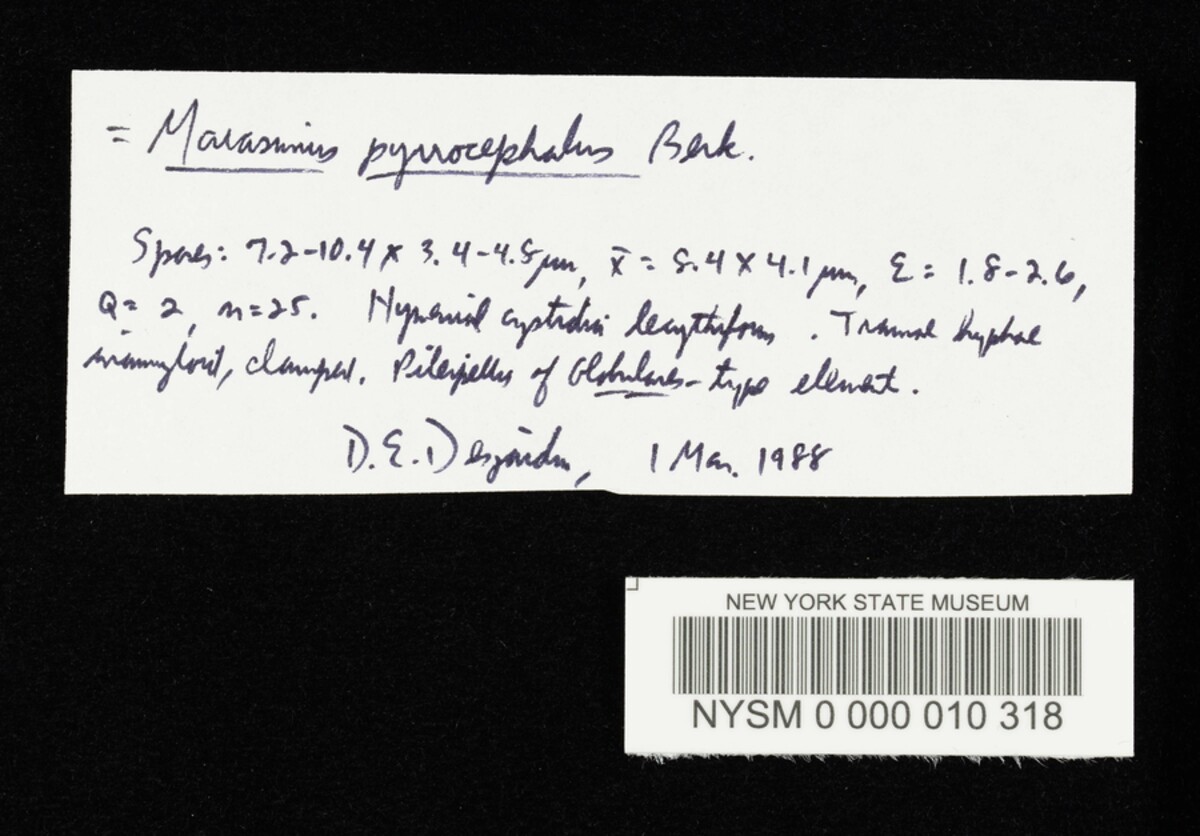 = Marasmius pyrrocephalus Berk.
Spores: 7.2-10.4 x 3.4-4.8 µm, x̄ = 8.4 x 4.1 µm, E = 1.8-2.6,
Q = 2, n=25. Hymenial cystidia lecythiform. Tramal hyphae
inamyloid, clamped. Pileipellis of Globulares-type element.
D.E. Desjardin, 1 Mar. 1988
NEW YORK STATE MUSEUM
NYSM 0 000 010 318